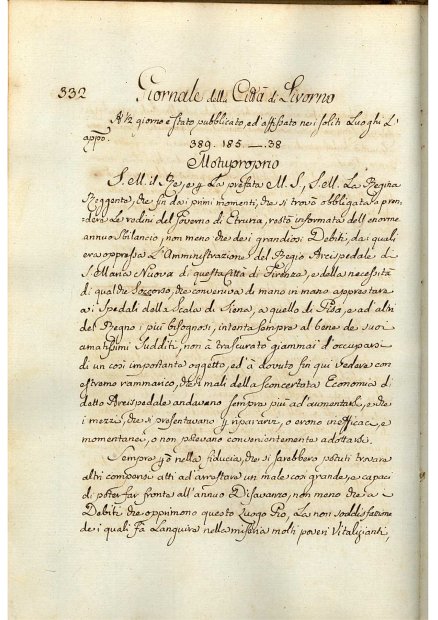 332 Giornale della Città di Livorno
A 12 giorno è stato pubblicato, ed affissato nei soliti Luoghi L'
appo.
389. 185 — 38
Motuproprio
S. M. il Re, e p. La prefata M. S., S. M. La Regina
Reggente, che fin dai primi momenti, che si trovò obbligata a pren-
dere Le redini del Governo di Etruria, restò informata dell'enorme
annuo sbilancio, non meno che dei grandiosi Debiti, da i quali
era oppressa L'Amministrazione del Regio Arcispedale di
S. Maria Nuova di questa Città di Firenza, e della necessità
di qualche Soccorso, che conveniva di mano in mano apprestare
a i Spedali della Scala di Siena, a quello di Pisa, e ad altri
del Regno i più bisognosi, intenta sempre al bene de suoi
amatissimi Sudditi, non à trascurato giammai d'occuparsi
di un così importante oggetto, ed à dovuto fin qui vedere con
estremo rammarico, che i mali della sconcertata Economia di
detto Arcispedale andavano sempre più ad aumentarsi, e che
i mezzi, che si presentavano p. ripararvi, o erono inefficaci, e
momentanei, o non potevano convenientemente adottarsi.
Sempre però nella fiducia, che si sarebbero potuti trovare
altri compensi atti ad arrestare un male così grande, e capaci
di poter far fronte all'annuo Disavanzo, non meno che a
Debiti che opprimono questo Luogo Pio, La non soddisfazione
de i quali Fà Languire nella miseria molti poveri Vitalizianti,